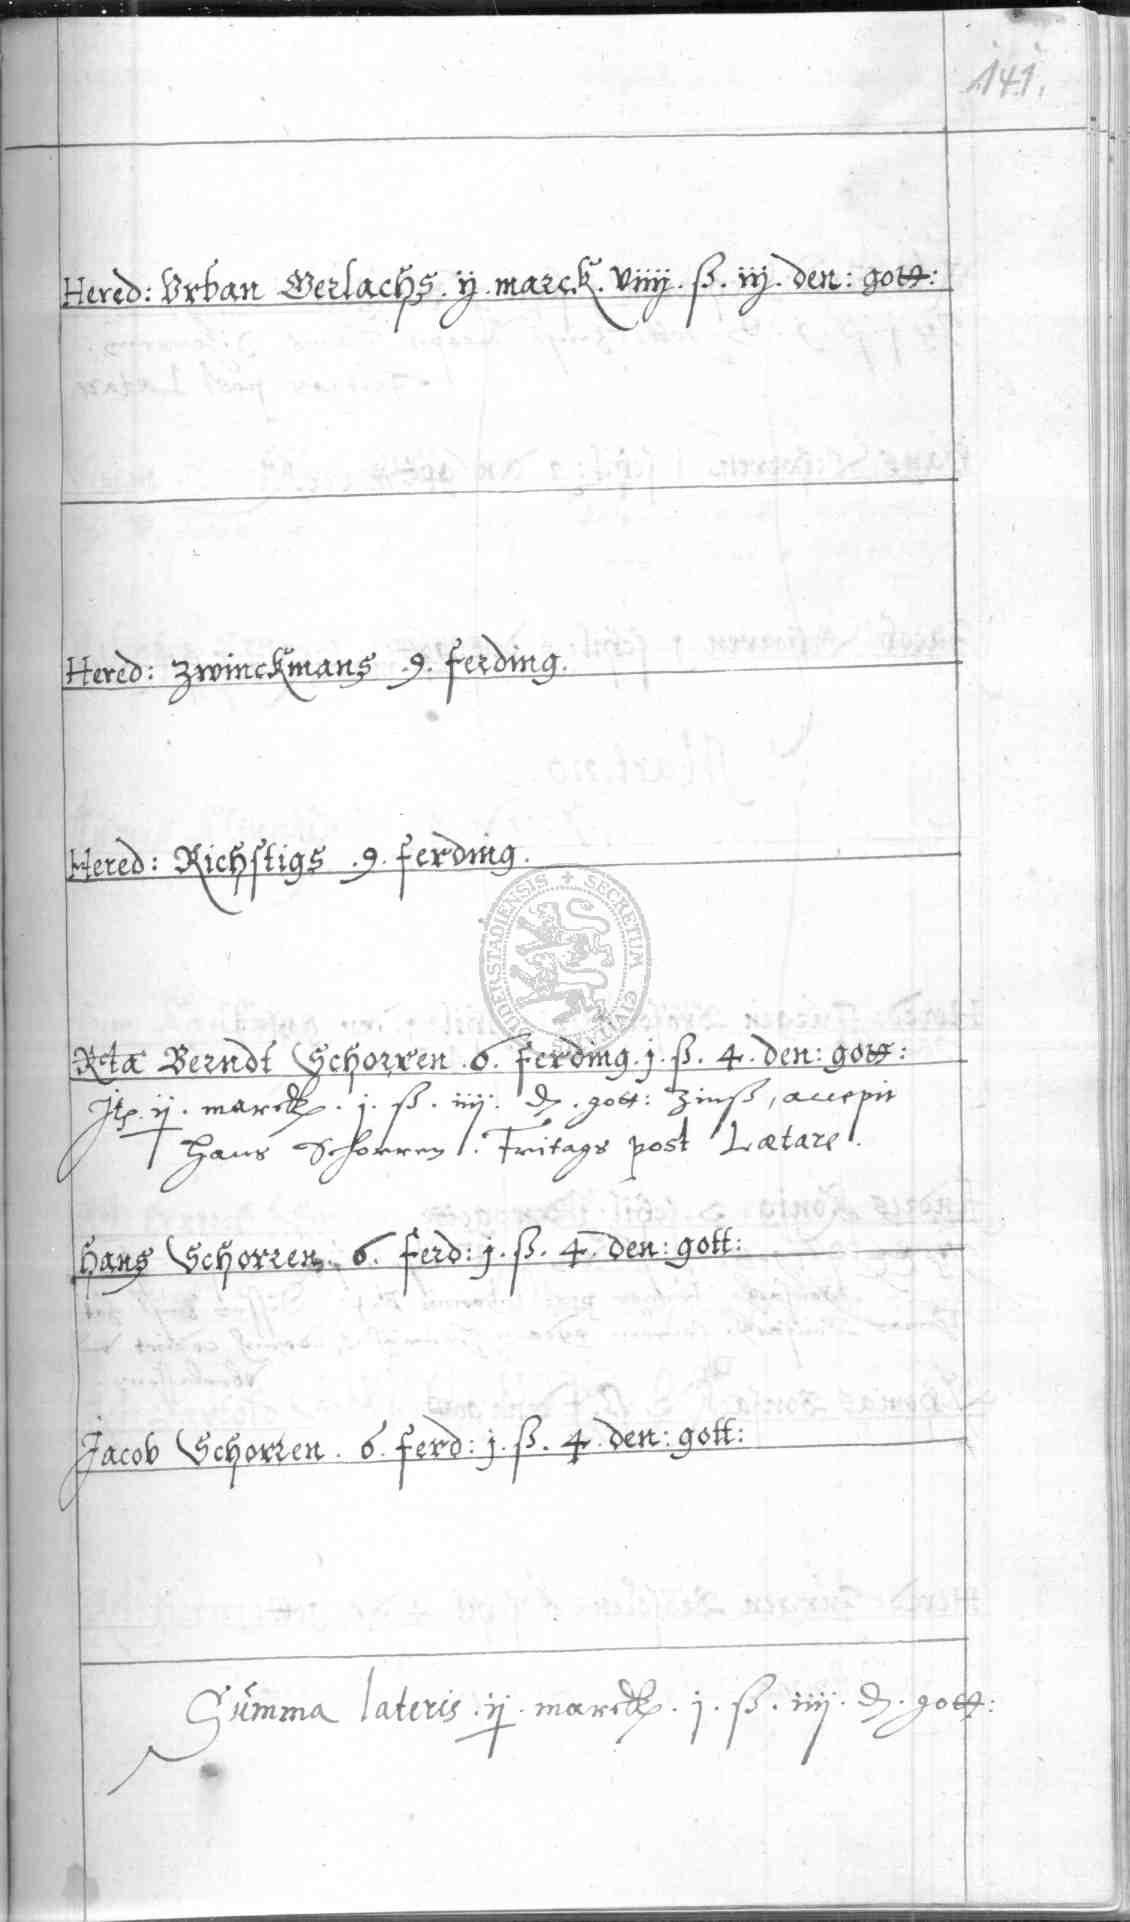 141.
Hered: Vrban Gerlachs . ij . marck . viiij . ß . iij . den : gott :
Hered: Zwinckmans . 9 . ferding .
Hered: Richstigs . 9 . ferding .
SECRETUM CIVIUM DUDERSTADIENSIS
Rcta Berndt Schorren . 6 . ferding . j . ß . 4 . den : gott :
Jtp . ij . marck . j . ß . iiij . d . gott : Zinß , accepit
Hans Schorren . Fritags post Lætare .
Hans Schorren . 6 . ferd : j . ß . 4 . den : gott :
Jacob Schorren . 6 . ferd : j . ß . 4 . den : gott :
Summa lateris . ij . marck . j . ß . iiij . d . gott :